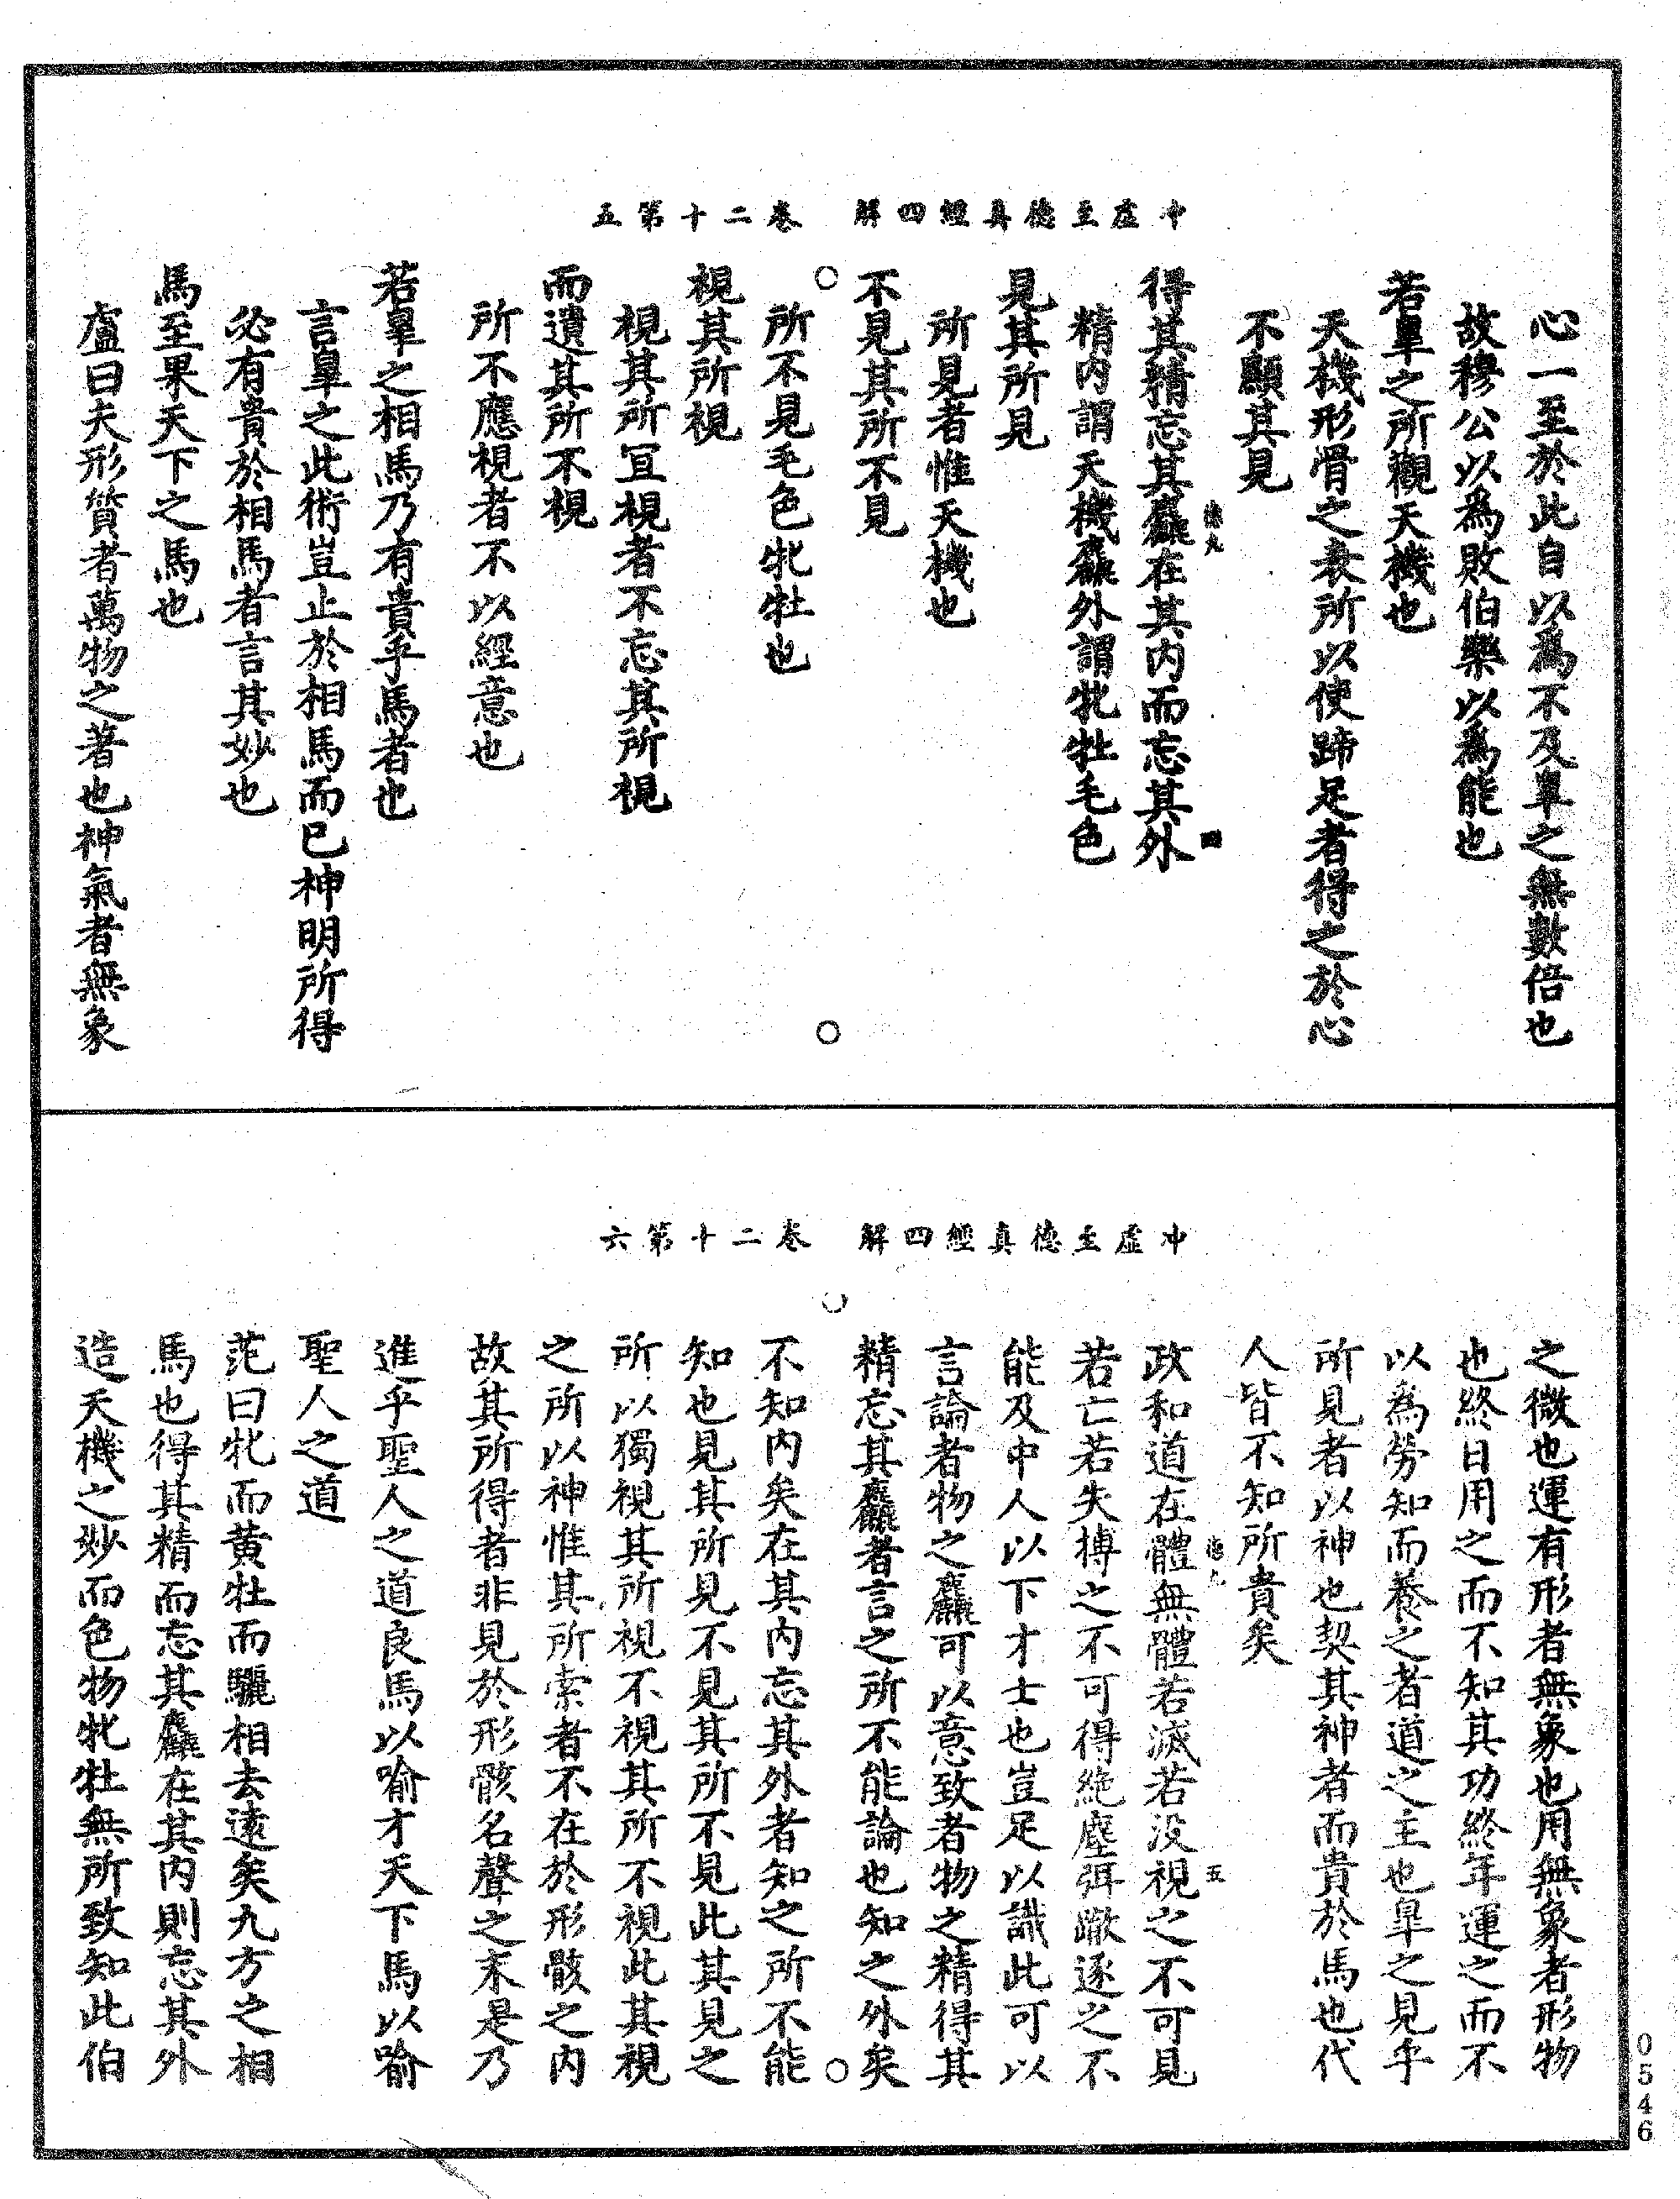 冲虛至德真經四解　卷二十第五
心一至於此自以爲不及臯之無數倍也
故穆公以爲敗伯樂以爲能也
若臯之所觀天機也
天機形骨之表所以使蹄足者得之於心
不顯其見
得其精忘其麤在其内而忘其外
精内謂天機麤外謂牝牡毛色
見其所見
所見者惟天機也
不見其所不見
所不見毛色牝牡也
視其所視
視其所冝視者不忘其所視
而遺其所不視
所不應視者不以經意也
若臯之相馬乃有貴乎馬者也
言臯之此術豈止於相馬而已神明所得
必有貴於相馬者言其妙也
馬至果天下之馬也
盧曰夫形質者萬物之著也神氣者無象
冲虛至德真經四解　卷二十第六
之微也運有形者無象也用無象者形物
也終日用之而不知其功終年運之而不
以為勞知而養之者道之主也臯之見乎
所見者以神也契其神者而貴於馬也代
人皆不知所貴矣
政和道在體無體若滅若没視之不可見
若亡若失搏之不可得絶塵弭蹤逐之不
能及中人以下才士也豈足以識此可以
言論者物之麤可以意致者物之精得其
精忘其麤者言之所不能論也知之外矣
不知内矣在其内忘其外者知之所不能
知也見其所見不見其所不見此其見之
所以獨視其所視不視其所不視此其視
之所以神惟其所索者不在於形骸之内
故其所得者非見於形骸名聲之末是乃
進乎聖人之道良馬以喻才天下馬以喻
聖人之道
范曰牝而黄牡而驪相去遠矣九方之相
馬也得其精而忘其麤在其内則忘其外
造天機之妙而色物牝牡無所致知此伯
0546